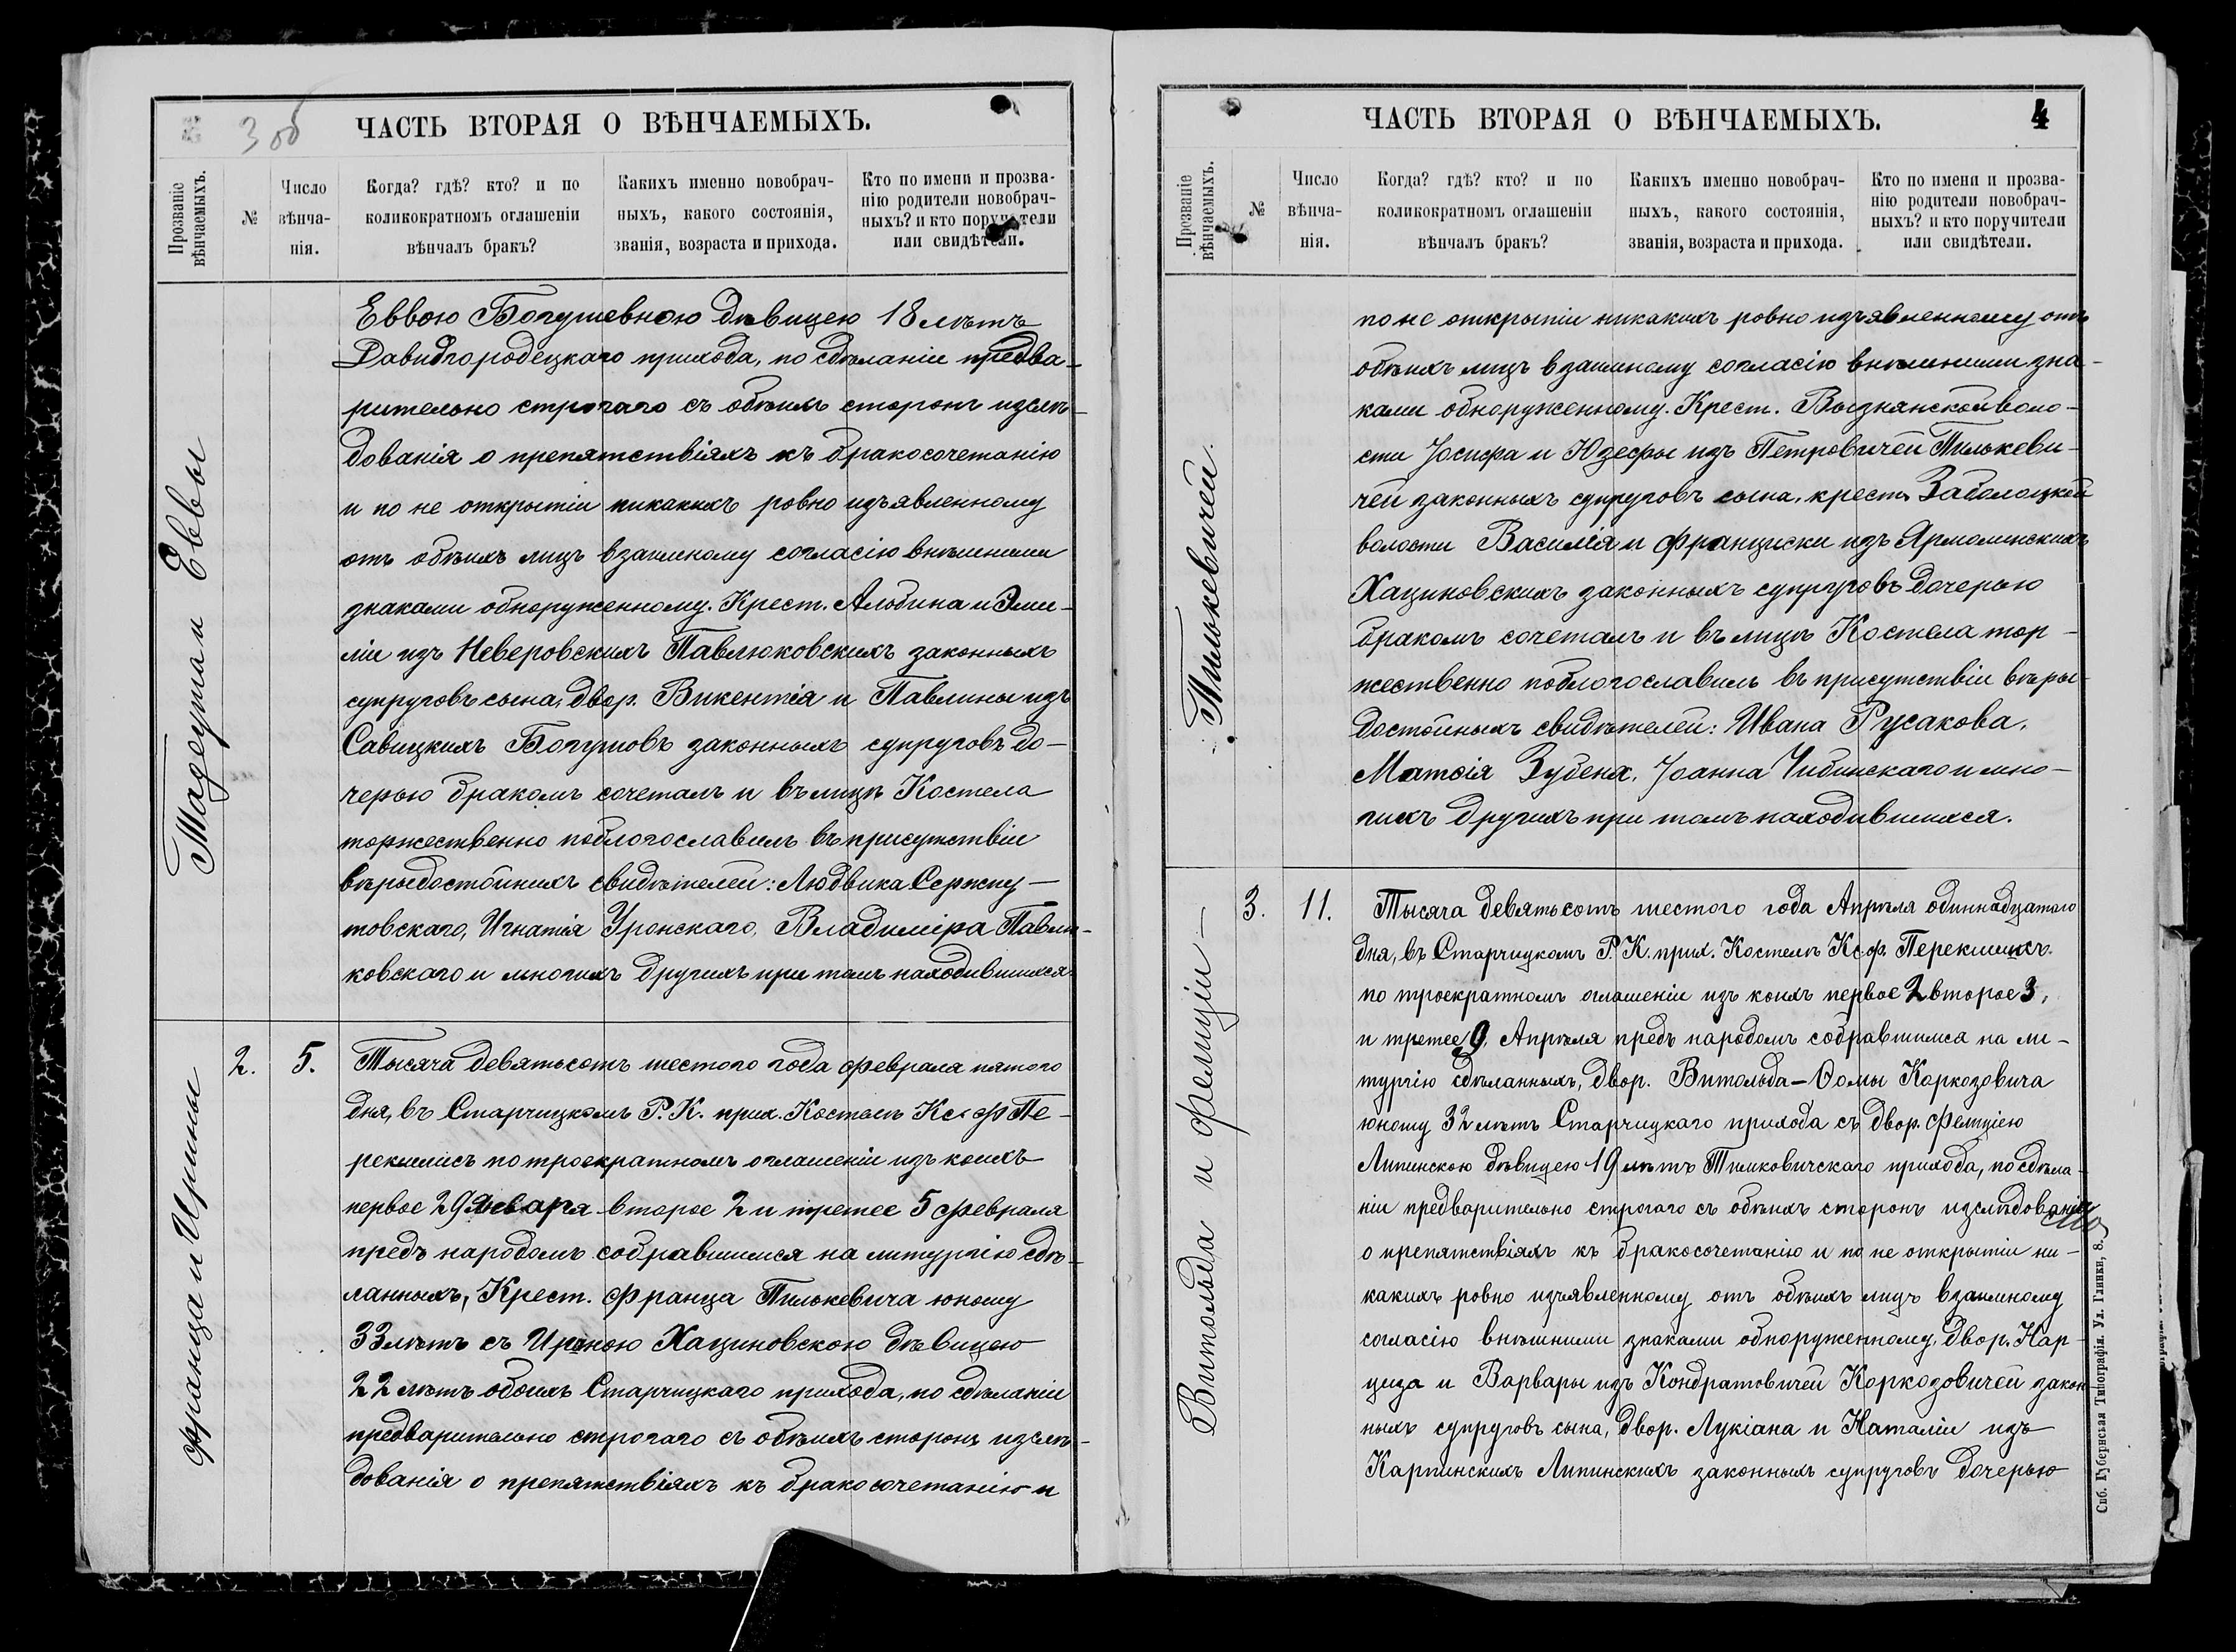 3 об
ЧАСТЬ ВТОРАЯ О ВѢНЧАЕМЫХЪ.
Прозваніе вѣнчаемыхъ.
№
Число вѣнча-
нія.
Когда? гдѣ? кто? и по
коликократномъ оглашеніи
вѣнчалъ бракъ?
Какихъ именно новобрач-
ныхъ, какого состоянія,
званія, возраста и прихода.
Кто по имени и прозва-
нію родители новобрач-
ныхъ? и кто поручители
или свидѣтели.
Тадеуша и Еввы
Еввою Богушевною дѣвицею 18 лѣтъ
Давидгородецкаго прихода, по сдѣланіи предва-
рительно строгаго съ обѣихъ сторонъ изслѣ-
дованія о препятствіяхъ къ бракосочетанію
и по не открытіи никакихъ ровно изъявленному
отъ обѣихъ лицъ взаимному согласію внѣшними
знаками обнаруженному. Крест. Альбина и Эми-
ліи изъ Неверовскихъ Павлюковскихъ законныхъ
супруговъ сына, двор. Викентія и Павлины изъ
Савицкихъ Богушовъ законныхъ супруговъ до-
черью бракомъ сочеталъ и въ лицѣ Костела
торжественно поблогославилъ въ присутствіи
вѣрыдостойныхъ свидѣтелей: Людвика Сержпу-
товскаго, Игнатія Уронскаго, Владиміра Павлю-
ковскаго и многихъ другихъ при томъ находившихся.
Франца и Ирины
2.
5.
Тысяча девятьсотъ шестого года февраля пятого
дня, въ Старчицкомъ Р. К. прих. Костелѣ Кс. Ф Пе-
рекшисъ по троекратномъ оглашеніи изъ коихъ
первое 29 Января второе 2 и третее 5 февраля
предъ народомъ собравшимся на литургію сдѣ-
ланныхъ, Крест. Франца Тилькевича юношу
33 лѣтъ съ Иреною Хациновскою дѣвицею
22 лѣтъ обоихъ Старчицкаго прихода, по сдѣланіи
предварительно строгаго съ обѣихъ сторонъ изслѣ-
дованія о препятствіяхъ къ бракосочетанію и
ЧАСТЬ ВТОРАЯ О ВѢНЧАЕМЫХЪ.
4
Прозваніе вѣнчаемыхъ.
№
Число вѣнча-
нія.
Когда? гдѣ? кто? и по
коликократномъ оглашеніи
вѣнчалъ бракъ?
Какихъ именно новобрач-
ныхъ, какого состоянія,
званія, возраста и прихода.
Кто по имени и прозва-
нію родители новобрач-
ныхъ? и кто поручители
или свидѣтели.
Тилькевичей.
по не открытіи никакихъ ровно изъявленному отъ
обѣихъ лицъ взаимному согласію внѣшними зна-
ками обнаруженному. Крест. Вызнянской воло-
сти Іосифа и Юзефы изъ Петровичей Тилькеви-
чей законныхъ супруговъ сына, крест. Заболоцкой
волости Василія и Франциски изъ Ярмолинскихъ
Хациновскихъ законныхъ супруговъ дочерью
бракомъ сочеталъ и въ лицѣ Костела тор-
жественно поблогославилъ въ присутствіи вѣры-
достойныхъ свидѣтелей: Ивана Русакова,
Матѳія Зубена, Іоанна Чибинскаго и мно-
гихъ другихъ при томъ находившихся.
Витольда и Фелиціи —
3.
11.
Тысяча девятьсотъ шестого года Апрѣля одиннадцатого
дня, въ Старчицкомъ Р. К. прих. Костелѣ Кс. Ф. Перекшисъ.
по троекратномъ оглашеніи изъ коихъ первое 2 второе 3,
и третее 9 Апрѣля предъ народомъ собравшимся на ли-
тургію сдѣланныхъ, двор. Витольда-Ѳомы Коркозовича
юношу 32 лѣтъ Старчицкаго прихода съ двор. Фелиціею
Липинскою дѣвицею 19 лѣтъ Тимковичскаго прихода, по сдѣла-
ніи предварительно строгаго съ обѣихъ сторонъ изслѣдованія
о препятствіяхъ къ бракосочетанію и по не открытіи ни-
какихъ ровно изъявленному отъ обѣихъ лицъ взаимному
согласію внѣшними знаками обнаруженному, двор. Нар-
циза и Варвары изъ Кондратовичей Коркозовичей закон-
ныхъ супруговъ сына, двор. Лукіана и Наталіи изъ
Карпинскихъ Липинскихъ законныхъ супруговъ дочерью
Спб. Губернская Типографія. Ул. Глинки, 8.